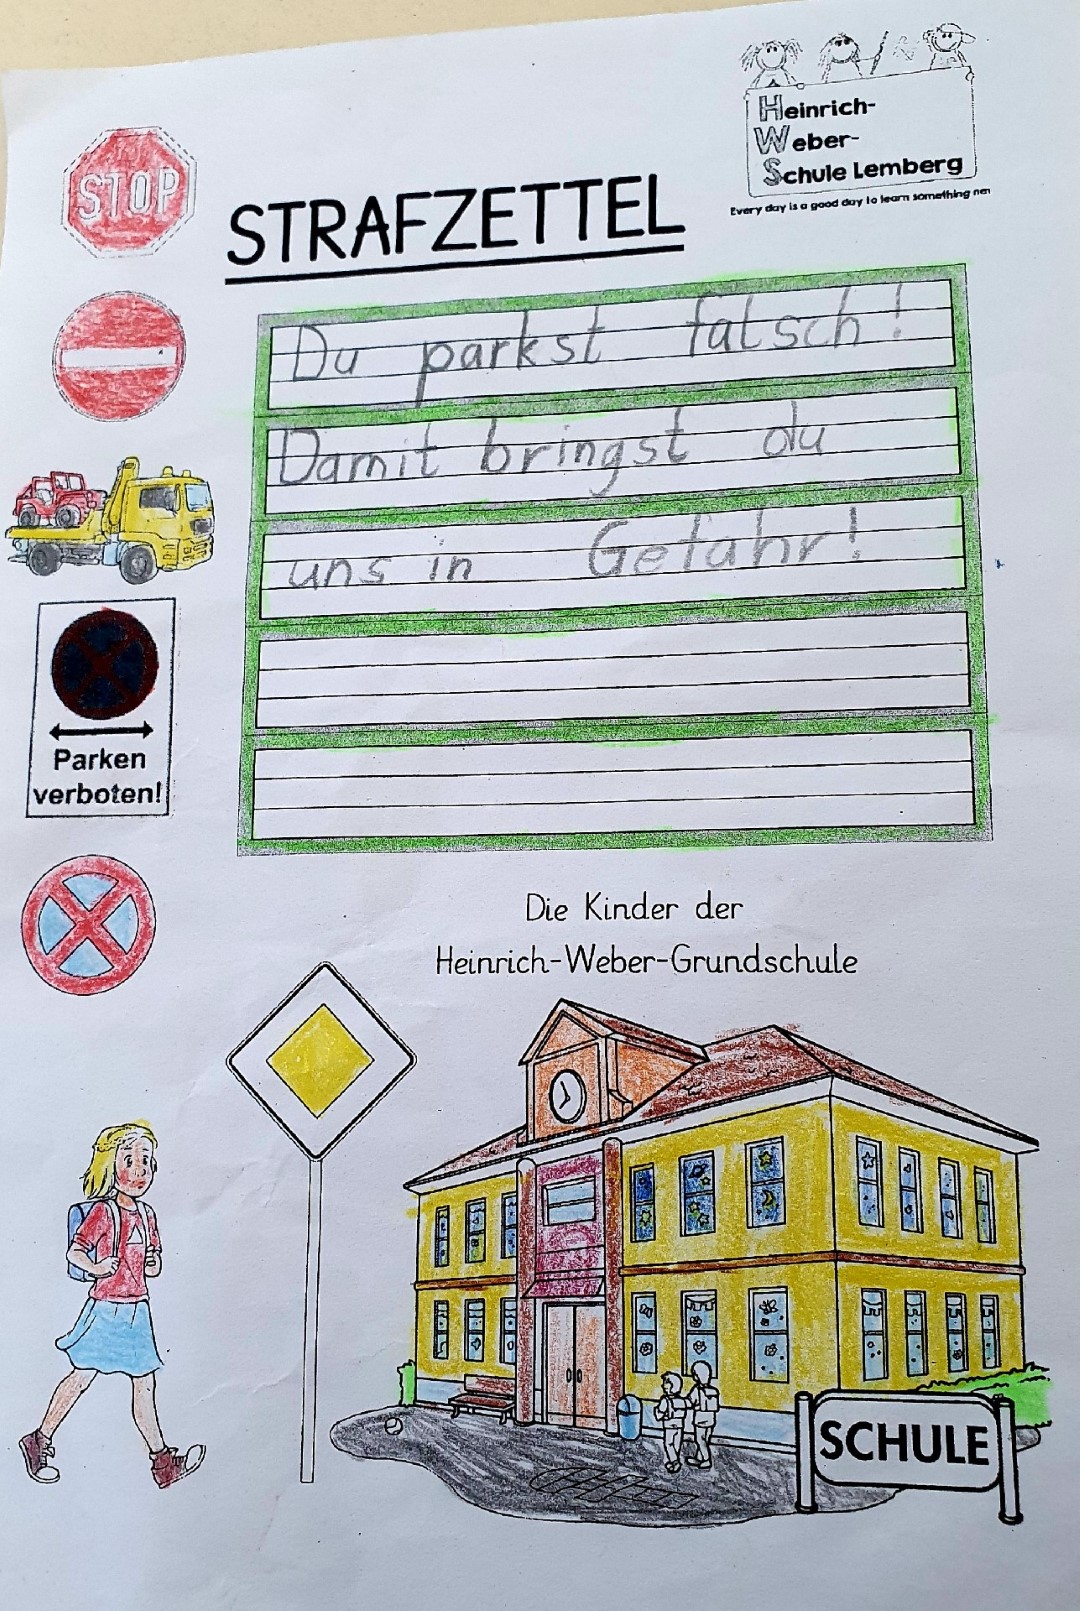 Heinrich-
Weber-
Schule Lemberg
Every day is a good day to learn something
STOP
STRAFZETTEL
Du parkst falsch!
Damit bringst du
uns in Gefahr!
Parken
verboten!
Die Kinder der
Heinrich-Weber-Grundschule
SCHULE